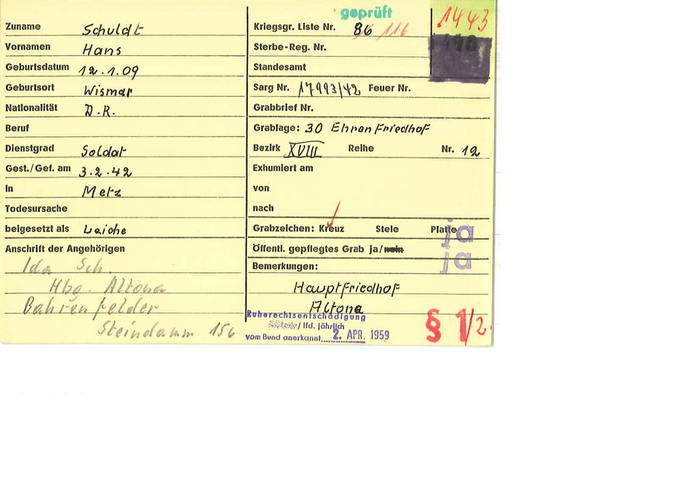 geprüft
Zuname Schuldt
Vornamen Hans
Geburtsdatum 12.1.09
Geburtsort Wismar
Nationalität D.R.
Beruf
Dienstgrad Soldat
Gest./Gef. am 3.2.42
In Metz
Todesursache
beigesetzt als Leiche
Anschrift der Angehörigen
Ida Sch.
Hbg. Altona
Bahrenfelder
Steindamm 156
Kriegsgr. Liste Nr. 86 116
1443
Sterbe-Reg. Nr.
Standesamt
Sarg Nr. 17993/42 Feuer Nr.
Grabbrief Nr.
Grablage: 30 Ehrenfriedhof
Bezirk XVIII Reihe Nr. 12
Exhumiert am
von
nach
Grabzeichen: Kreuz Stele Platte ja
Öffentl. gepflegtes Grab ja/nein ja
Bemerkungen:
Hauptfriedhof
Altona
Ruherechtsentschädigung
/ lfd. jährlich
vom Bund anerkannt 2. APR. 1959
§ 1/2